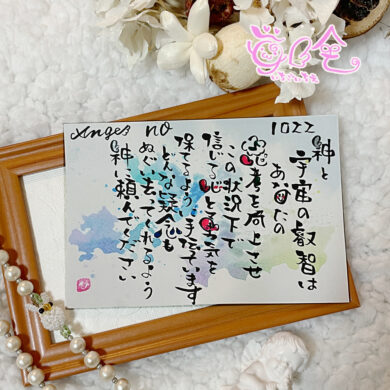 Angel no 1022
神と
宇宙の叡智は
あなたの
思考を向上させ
この状況下で
信じる心と勇気を
保てるよう手伝っています
どんな疑念も
ぬぐい去ってくれるよう
神に頼んでください